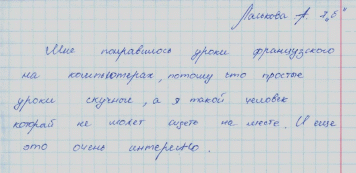 А. 2 "Б"
Мне понравилось уроки французского
на компьютерах, потому что простые
уроки скучные, а я такой человек
который не может сидеть на месте. И еще
это очень интересно.